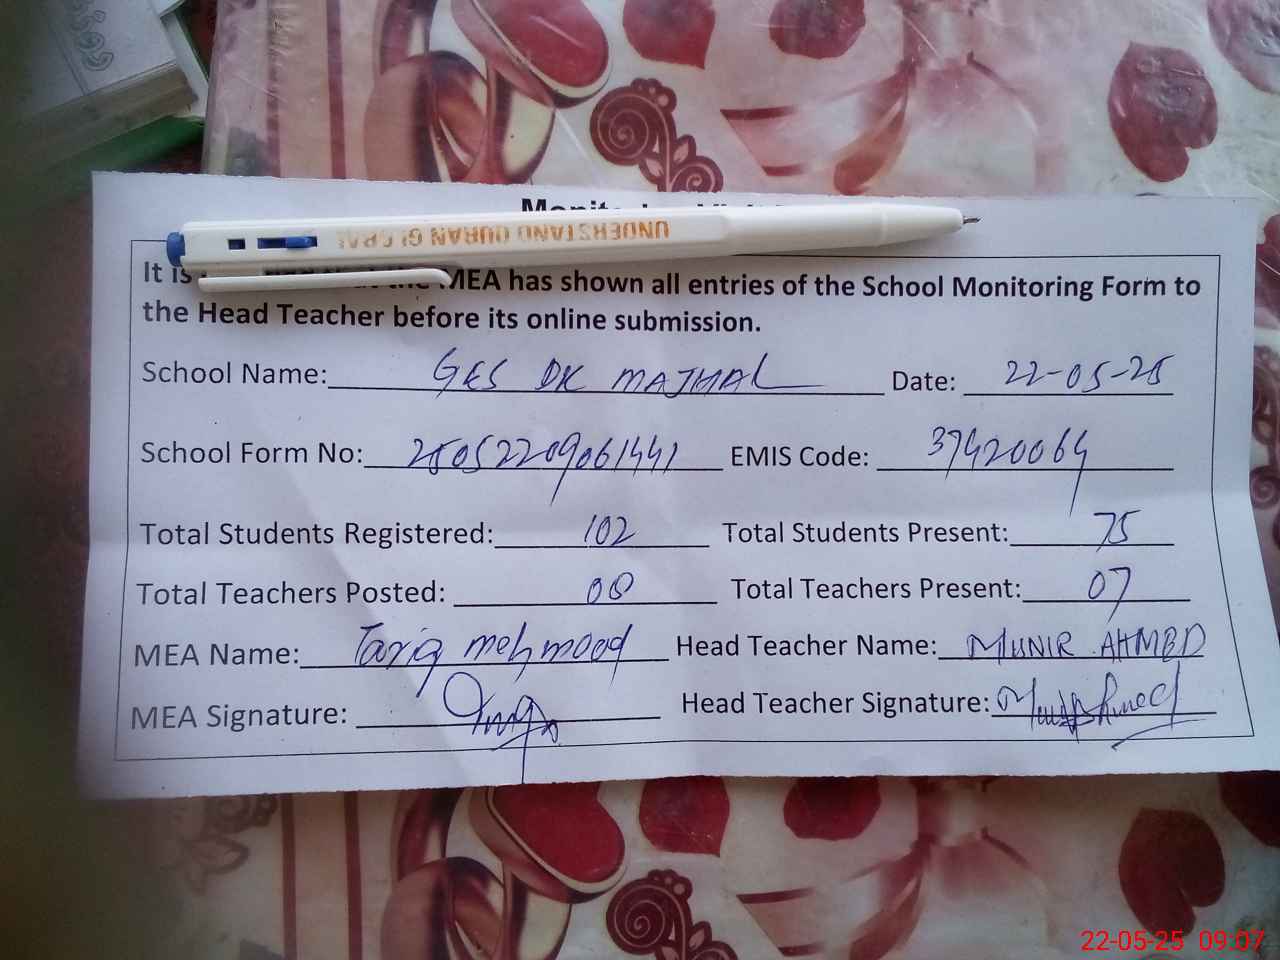 UNDERSTAND QURAN GLOBAL
It is MEA has shown all entries of the School Monitoring Form to
the Head Teacher before its online submission.
School Name: GES DK MAJHAL Date: 22-05-25
School Form No: 25052209061441 EMIS Code: 37420064
Total Students Registered: 102 Total Students Present: 75
Total Teachers Posted: 08 Total Teachers Present: 07
MEA Name: Tariq mehmood Head Teacher Name: MUNIR AHMED
MEA Signature: Head Teacher Signature:
22-05-25 09:07